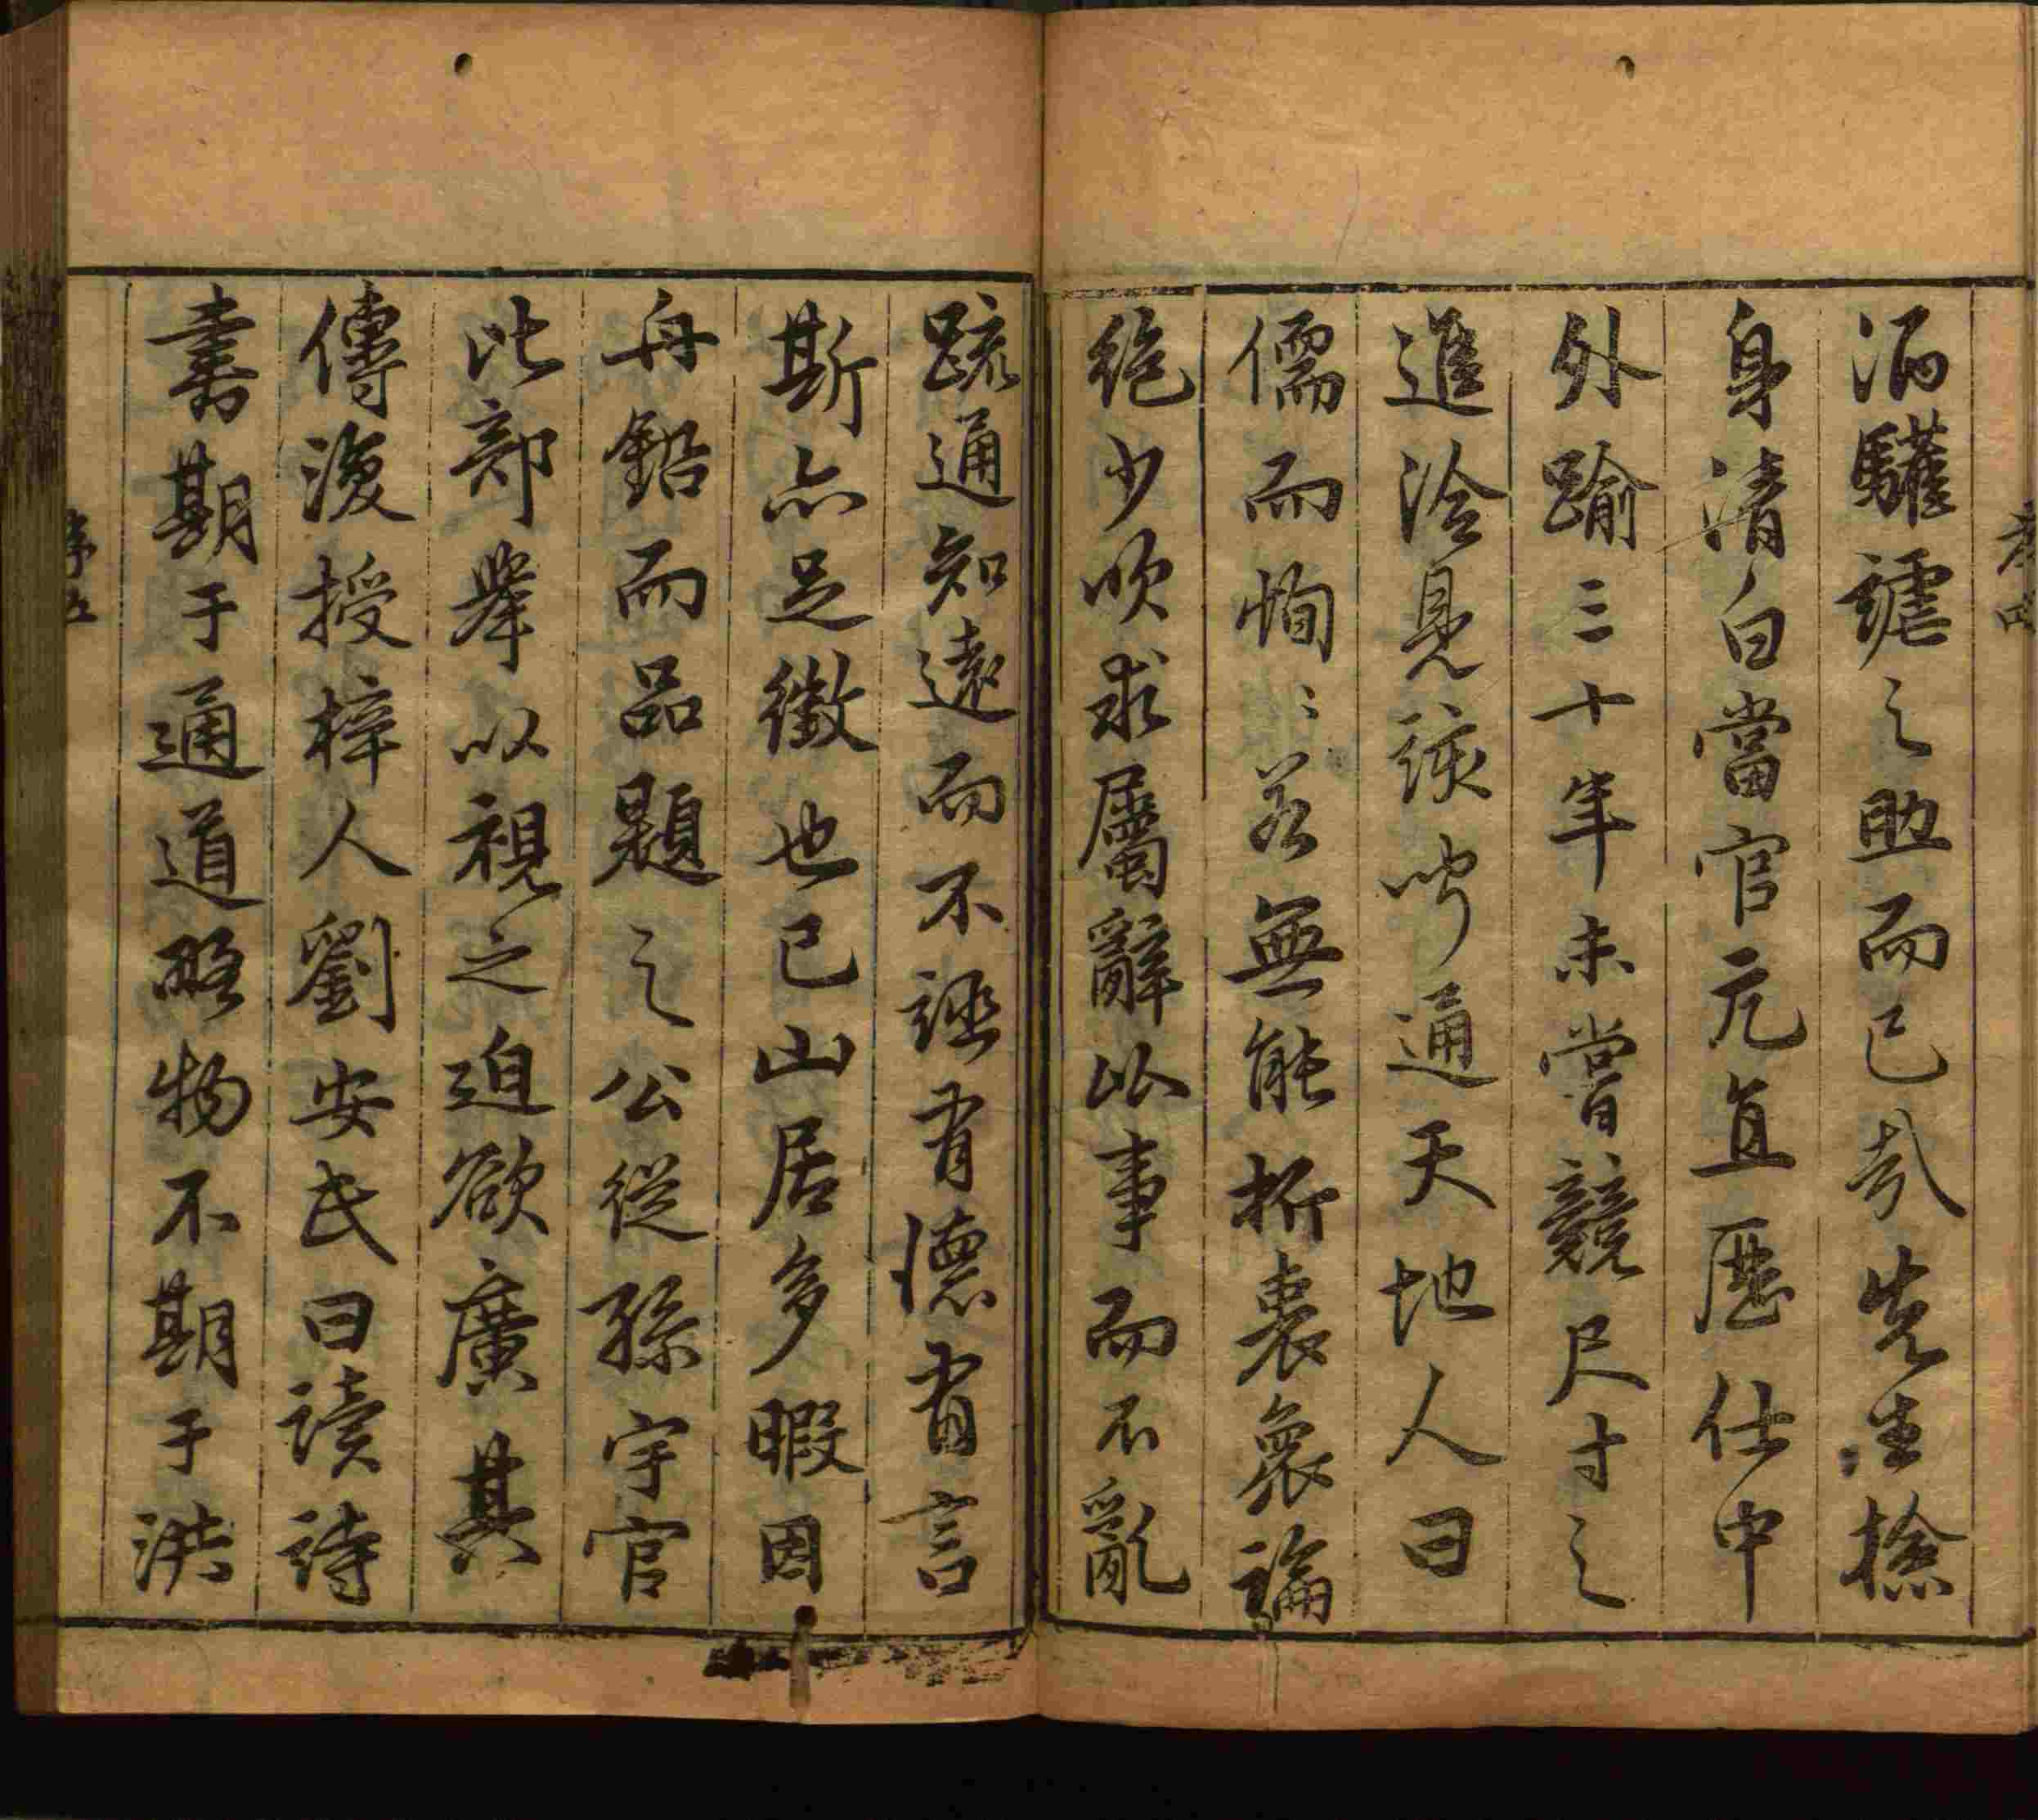 酒驩謔之助而已哉先生撿
身清白當官亢直歷仕中
外踰三十年未嘗競尺寸之
進洽見該聞通天地人曰
儒而恂〻若無能折衷衆論
絶少吹求屬辭以事而不亂
疏通知遠而不誣有德有言
斯亦足徵也已山居多暇因
丹鉛而品題之公從孫宇官
比部舉以視之迫欲廣其
傳復授梓人劉安民曰讀詩
書期于通道略物不期于洪
序五